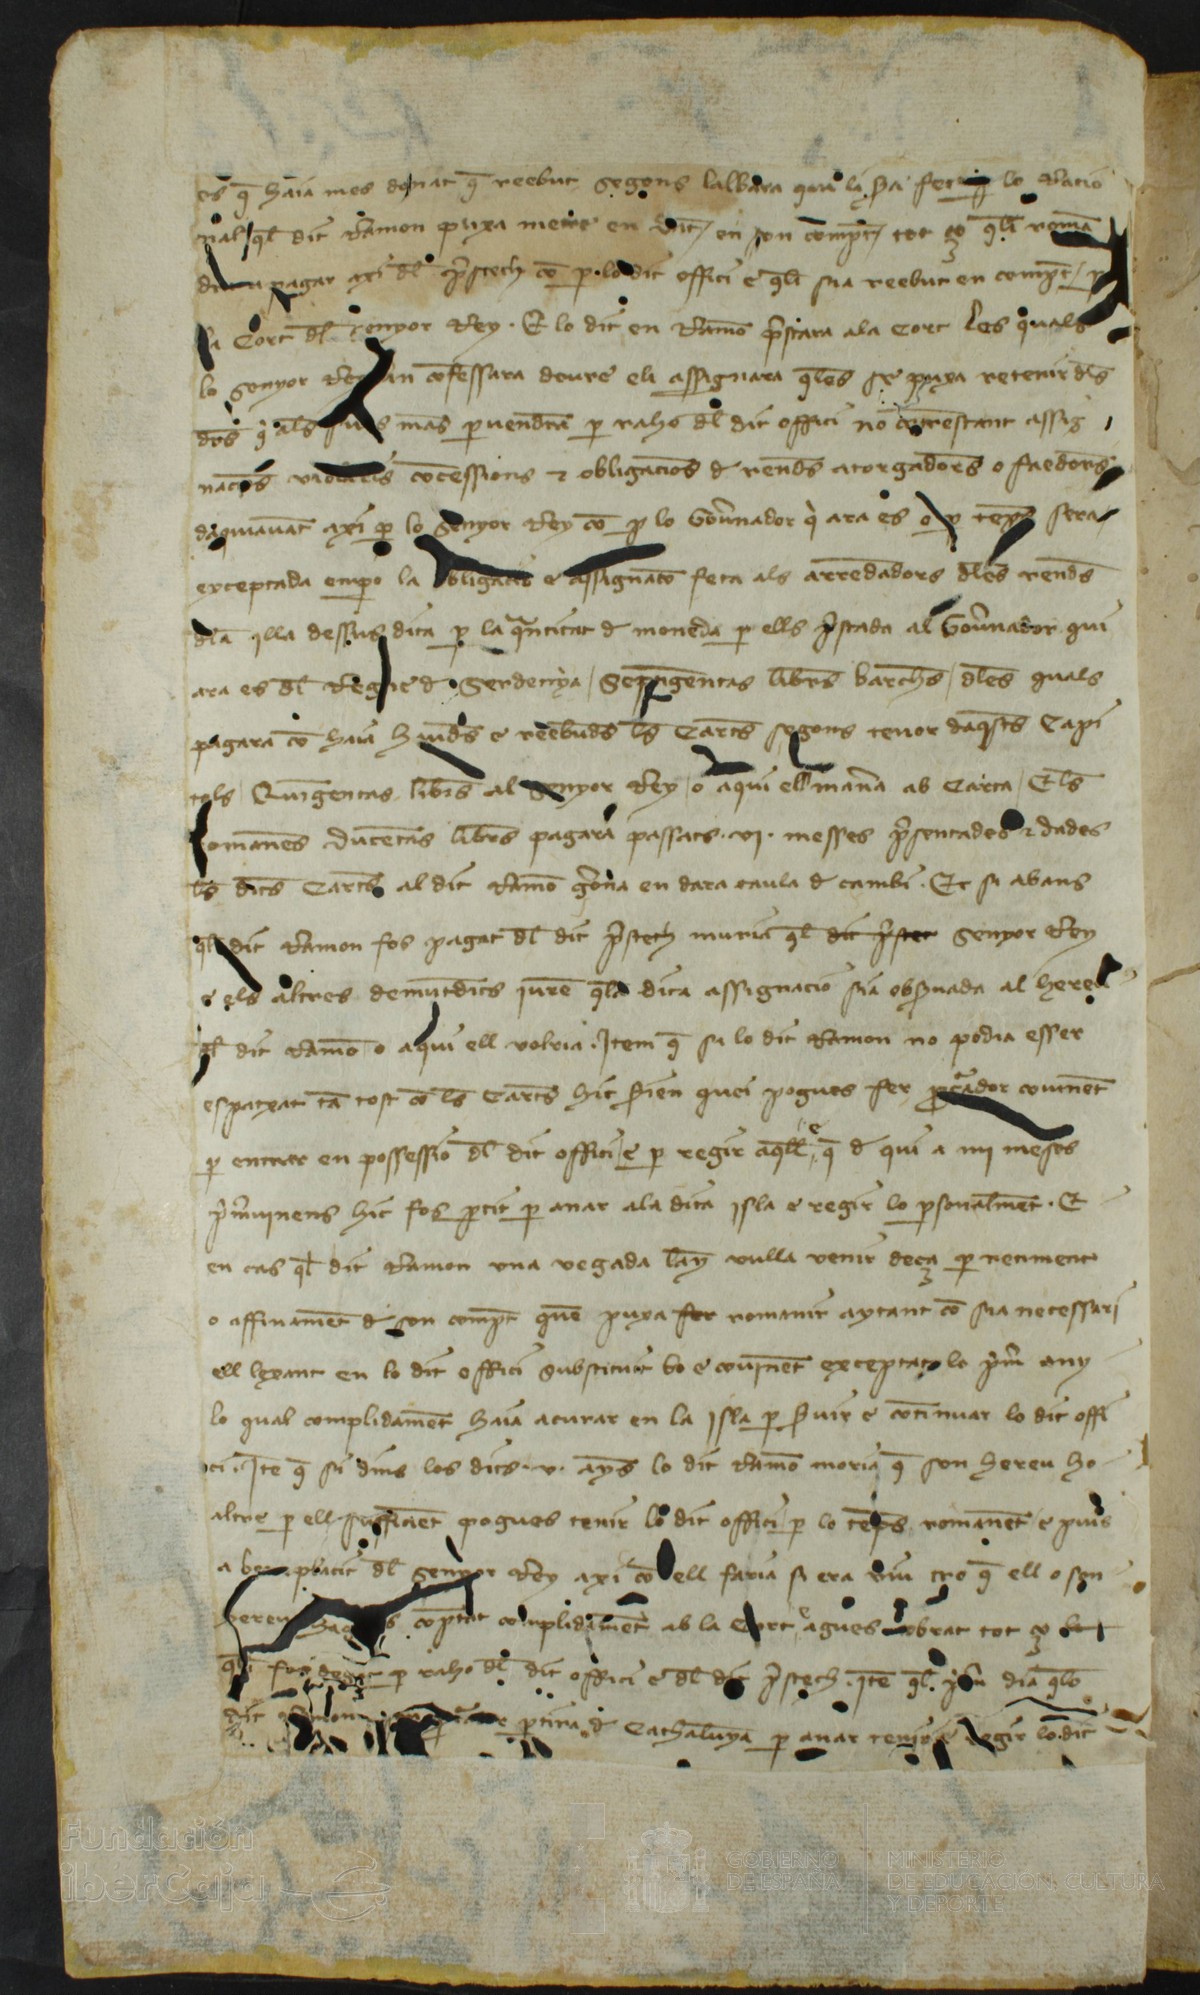 es q̄ haia mes donat q̄ reebut segons lalbara qui li sia fet p̲ lo Racio
nal ql̄ dit Ramon puxa metre en dit / en son compt / tot ço ql̄i roma
pagar axi dl̄ p̄stech cō p̲ lo dit offici e ql̄i sia reebut en compt / p̲
la Cort dl̄ senyor Rey . E lo dit en Ramō p̄stara ala Cort les quals
lo senyor Rey cōfessara deure eli assignara qles se puxa retenir dls̄
drs̄ q̄ als seus mās p̲uendrā p̲ raho dl̄ dit offici no cōtrestant assig
nacōs violaris cōcessions ⁊ obligacios d̄ rends̄ atorgadors o faedors
daquiauāt axi p̲ lo senyor Rey cō p̲ lo Gou̅nador q̄ ara es o p̲ temps sera
exceptada empo la obligacio e assignacō feta als arrēdadors dles̄ rends̄
dla̅ illa dessus dita p̲ la quantitat d̄ moneda p̲ ells p̄stada al Gou̅nador qui
ara es dl̄ Regne d̄ Serdenya / Septīgentas libr̄s barchs̄ / dles̄ quals
pagara cō haia hauds̄ e reebuds̄ ls̄ Carts̄ segons tenor daqsts̄ Capi
tols / Quīgentas libr̄s al senyor Rey / o aqui ell manā ab Carta / Els̄
romanēs ducētas libr̄s pagara passats . vi . messes p̄sentades ⁊ dades
ls̄ dits̄ Carts̄ al dit Ramō gr̄ona en dara taula d̄ cambi . Et si abans
ql̄ dit Ramon fos pagat dl̄ dit p̄stech muria ql̄ dit p̄stec senyor Rey
e els altres demūtdits iurē qla̅ dita assignacio sia obs̄uada al hereu
dl̄ dit Ramō o aqui ell volria . Item q̄ si lo dit Ramon no podia esser
espatxat tā tost cō ls̄ Carts̄ hic sien quei pogues fer pcuador couinēt
p̲ entrar en possessio dl̄ dit offici e p̲ regir aqll̄ e q̄ d̄ qui a iiij meses
p̄m̄uinens hic fos p̲tit p̲ anar ala dita isla e regir lo p̲sonalmēt . E
en cas ql̄ dit Ramon una vegada lāy vulla venir deça p̲ retiment
o affinamēt d̄ son compt quē puxa fer romanir aytant cō sia necessari
ell lexant en lo dit offici substituit bo e couinēt exceptat lo p̄m̄ any
lo qual complidamēt haia aturar en la isla p̲ s̄uir e cōtinuar lo dit offi
ci . Itē q̄ si dins los dits . v . anys̄ lo dit Ramō moria q̄ son hereu ho
altre p̲ ell sufficiēt pogues tenir lo dit offici p̲ lo tēps romanēt e puis
a beneplacit dl̄ senyor Rey axi cō ell faria si era viu tro q̄ ell o son
hereu cōptat complidamēt ab la Cort e agues cobrat tot ço
fos degut p̲ raho dl̄ dit offici e dl̄ dit p̄stech . Itē ql̄ p̄m̄ dia qlo̅
dit Ramon p̲tira d̄ Cathalunya p̲ anar tenir e regir lo dit